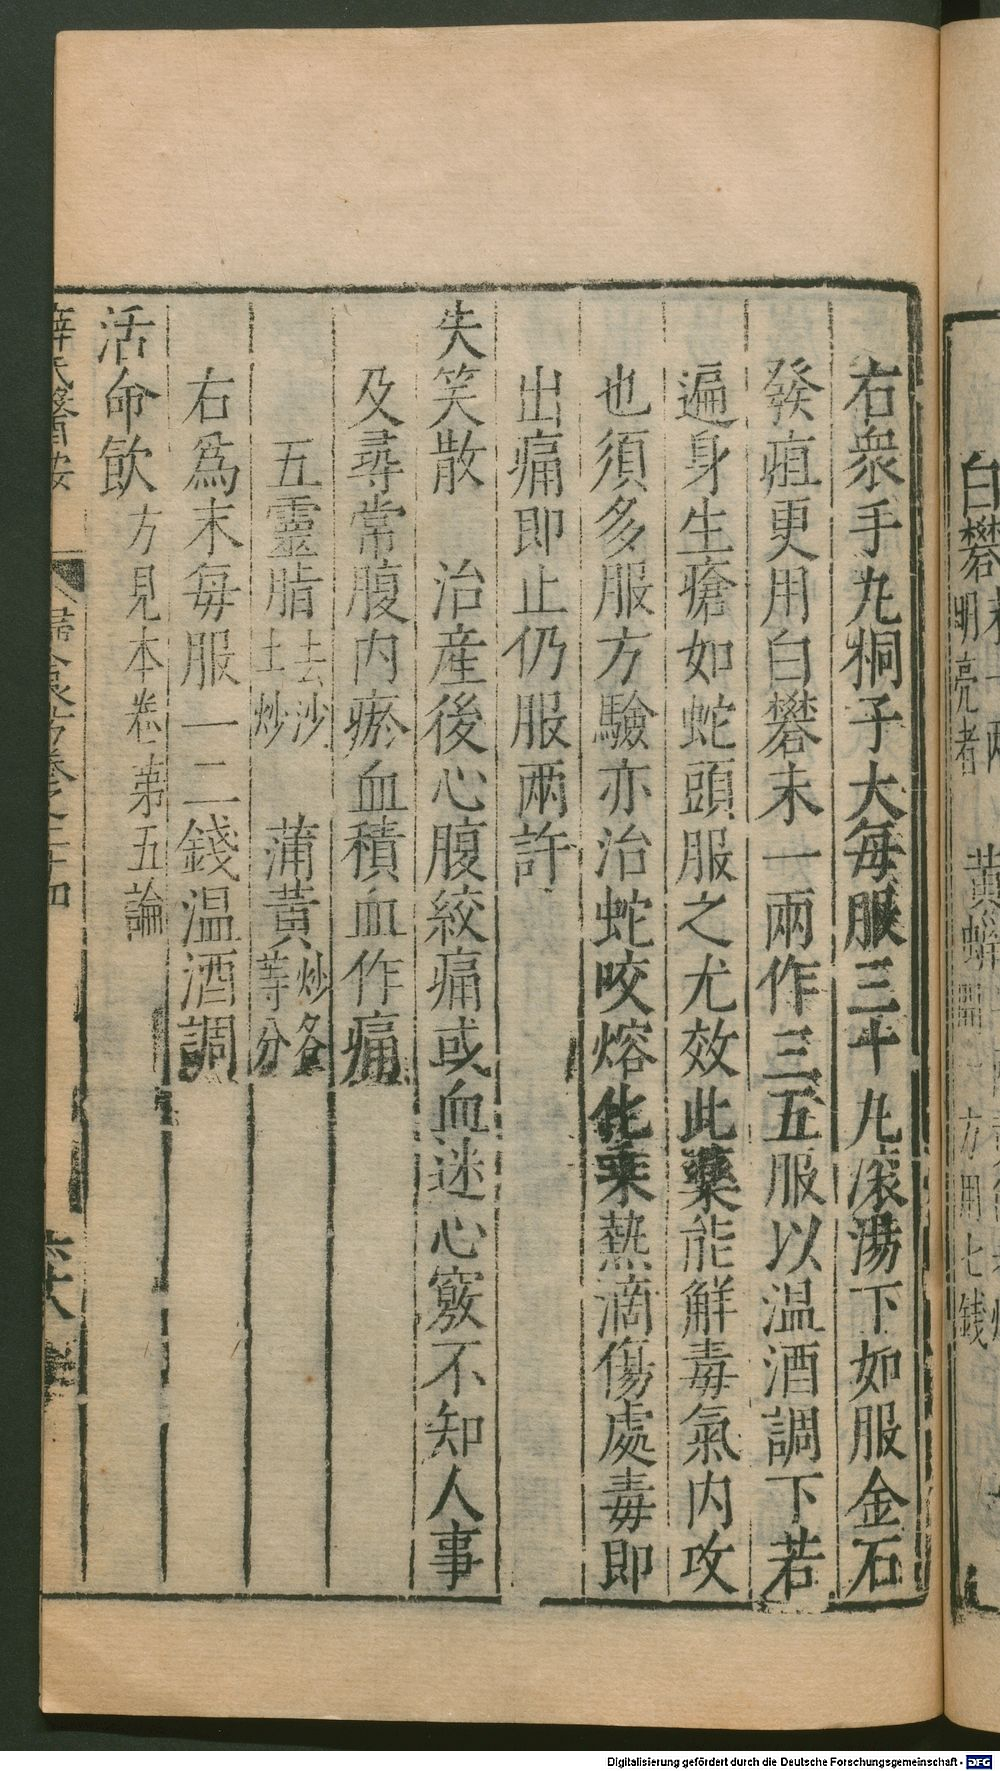 右衆手丸桐子大每服三十丸滚湯下如服金石
發疽更用白礬末一兩作三五服以温酒調下若
遍身生瘡如蛇頭服之尤效此藥能觧毒氣内攻
也須多服方驗亦治蛇咬熔化乘熱滴傷處毒即
出痛即止仍服兩許
失笑散 治産後心腹絞痛或血迷心竅不知人事
及尋常腹内瘀血積血作痛
五靈脂去沙土炒 蒲黄炒各等分
右爲末每服一二錢温酒調
活命飲方見本卷第五論
薛氏醫按
六十八
白礬明亮者 黄蠟
一方用七錢
Digitalisierung gefördert durch die Deutsche Forschungsgemeinschaft - DFG